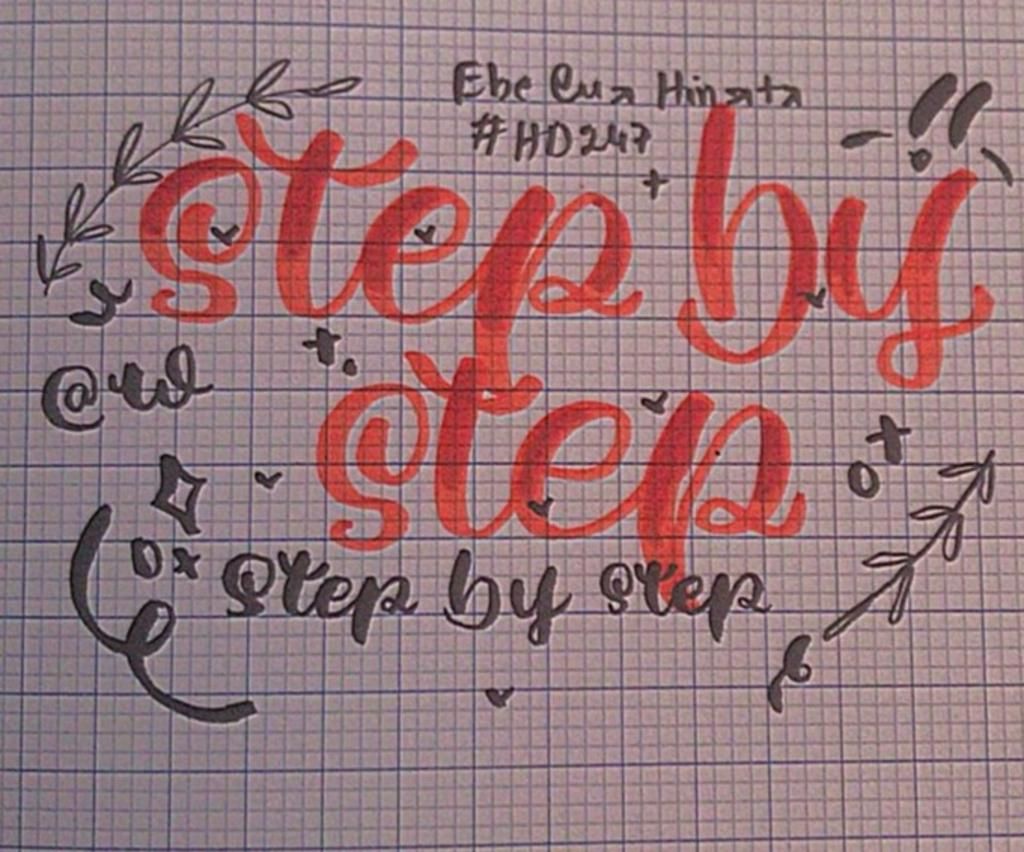 Ebe Cua Hinata
#HD247
step by
@w
step
step by step